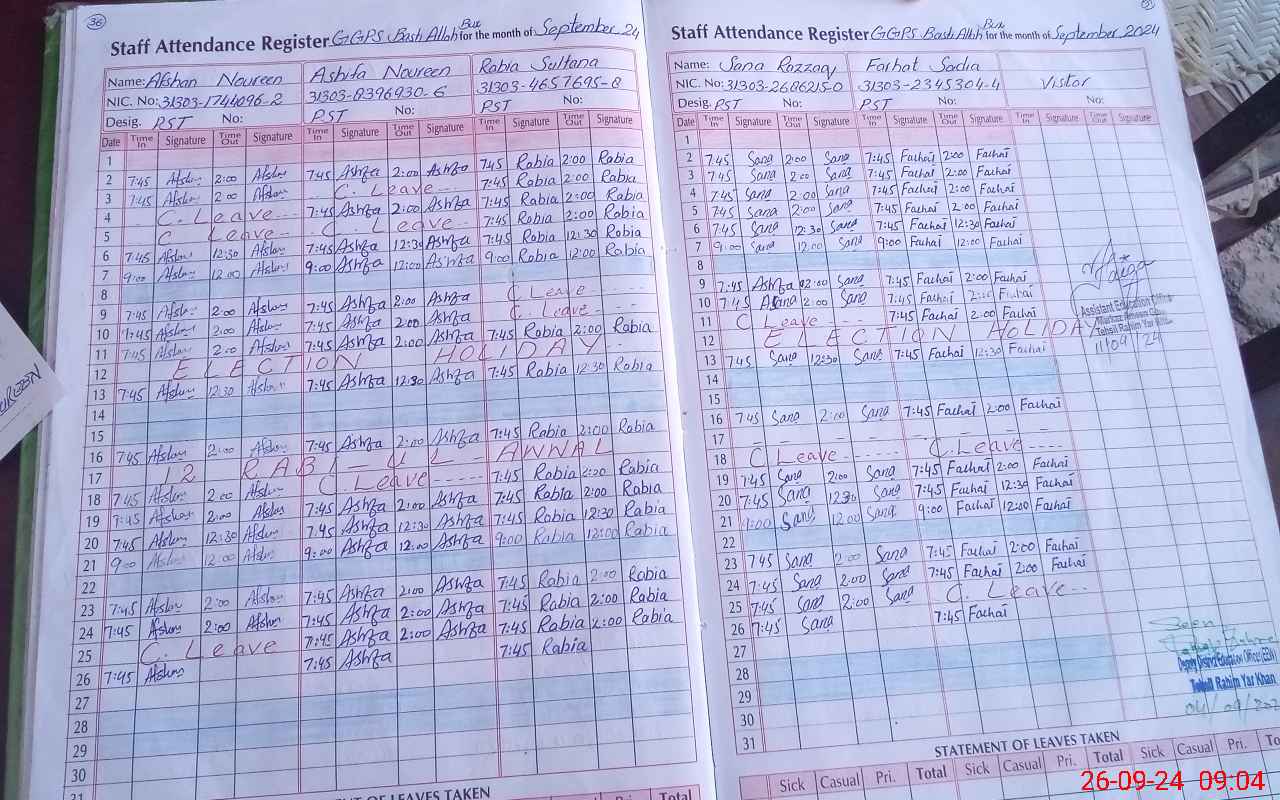 36
Staff Attendance Register GGPS Basti Allah Bux for the month of September 24
Name: Afshan Noureen Ashifa Noureen Rabia Sultana
NIC. No: 31303-1744096-2 31303-8396930-6 31303-4657695-8
Desig. PST No: PST No: PST No:
Date Time In Signature Time Out Signature Time In Signature Time Out Signature Time In Signature Time Out Signature
1
2 7:45 Afshan 2:00 Afshan 7:45 Ashifa 2:00 Ashifa 7:45 Rabia 2:00 Rabia
3 7:45 Afshan 2:00 Afshan C. Leave 7:45 Rabia 2:00 Rabia
4 C. Leave 7:45 Ashifa 2:00 Ashifa 7:45 Rabia 2:00 Rabia
5 C Leave C. Leave 7:45 Rabia 2:00 Rabia
6 7:45 Afshan 12:30 Afshan 7:45 Ashifa 12:30 Ashifa 7:45 Rabia 12:30 Rabia
7 9:00 Afshan 12:00 Afshan 9:00 Ashifa 12:00 Ashifa 9:00 Rabia 12:00 Rabia
8
9 7:45 Afshan 2:00 Afshan 7:45 Ashifa 2:00 Ashifa C Leave
10 7:45 Afshan 2:00 Afshan 7:45 Ashifa 2:00 Ashifa C. Leave
11 7:45 Afshan 2:00 Afshan 7:45 Ashifa 2:00 Ashifa 7:45 Rabia 2:00 Rabia
12 ELECTION HOLIDAY
13 7:45 Afshan 12:30 Afshan 7:45 Ashifa 12:30 Ashifa 7:45 Rabia 12:30 Rabia
14
15
16 7:45 Afshan 2:00 Afshan 7:45 Ashifa 2:00 Ashifa 7:45 Rabia 2:00 Rabia
17 12 RABI-UL AWWAL
18 7:45 Afshan 2:00 Afshan C. Leave 7:45 Rabia 2:00 Rabia
19 7:45 Afshan 2:00 Afshan 7:45 Ashifa 2:00 Ashifa 7:45 Rabia 2:00 Rabia
20 7:45 Afshan 12:30 Afshan 7:45 Ashifa 12:30 Ashifa 7:45 Rabia 12:30 Rabia
21 9:00 Afshan 12:00 Afshan 9:00 Ashifa 12:00 Ashifa 9:00 Rabia 12:00 Rabia
22
23 7:45 Afshan 2:00 Afshan 7:45 Ashifa 2:00 Ashifa 7:45 Rabia 2:00 Rabia
24 7:45 Afshan 2:00 Afshan 7:45 Ashifa 2:00 Ashifa 7:45 Rabia 2:00 Rabia
25 C. Leave 7:45 Ashifa 2:00 Ashifa 7:45 Rabia 2:00 Rabia
26 7:45 Afshan 7:45 Ashifa 7:45 Rabia
27
28
29
30
31
STATEMENT OF LEAVES TAKEN
Pri. Total
Staff Attendance Register GGPS Basti Allah Bux for the month of September 2024
Name: Sana Razzaq Farhat Sadia
NIC. No: 31303-2686215-0 31303-2345304-4 Visitor
Desig. PST No: PST No: No:
Date Time In Signature Time Out Signature Time In Signature Time Out Signature Time In Signature Time Out Signature
1
2 7:45 Sana 2:00 Sana 7:45 Farhat 2:00 Farhat
3 7:45 Sana 2:00 Sana 7:45 Farhat 2:00 Farhat
4 7:45 Sana 2:00 Sana 7:45 Farhat 2:00 Farhat
5 7:45 Sana 2:00 Sana 7:45 Farhat 2:00 Farhat
6 7:45 Sana 12:30 Sana 7:45 Farhat 12:30 Farhat
7 9:00 Sana 12:00 Sana 9:00 Farhat 12:00 Farhat
8
9 7:45 Ashifa 2:00 Sana 7:45 Farhat 2:00 Farhat
10 7:45 Sana 2:00 Sana 7:45 Farhat 2:00 Farhat
11 C Leave 7:45 Farhat 2:00 Farhat
12 ELECTION HOLIDAY
13 7:45 Sana 12:30 Sana 7:45 Farhat 12:30 Farhat
14
15
16 7:45 Sana 2:00 Sana 7:45 Farhat 2:00 Farhat
17
18 C Leave C. Leave
19 7:45 Sana 2:00 Sana 7:45 Farhat 2:00 Farhat
20 7:45 Sana 12:30 Sana 7:45 Farhat 12:30 Farhat
21 9:00 Sana 12:00 Sana 9:00 Farhat 12:00 Farhat
22
23 7:45 Sana 2:00 Sana 7:45 Farhat 2:00 Farhat
24 7:45 Sana 2:00 Sana 7:45 Farhat 2:00 Farhat
25 7:45 Sana 2:00 Sana C. Leave
26 7:45 Sana 7:45 Farhat
27
28
29
30
31
Assistant Education Officer
Tehsil Rahim Yar Khan
11/09/24
Seen
Deputy District Education Officer (EEW)
Tehsil Rahim Yar Khan
04/09/202
STATEMENT OF LEAVES TAKEN
Sick Casual Pri. Total Sick Casual Pri. Total Sick Casual Pri. Total
26-09-24 09:04